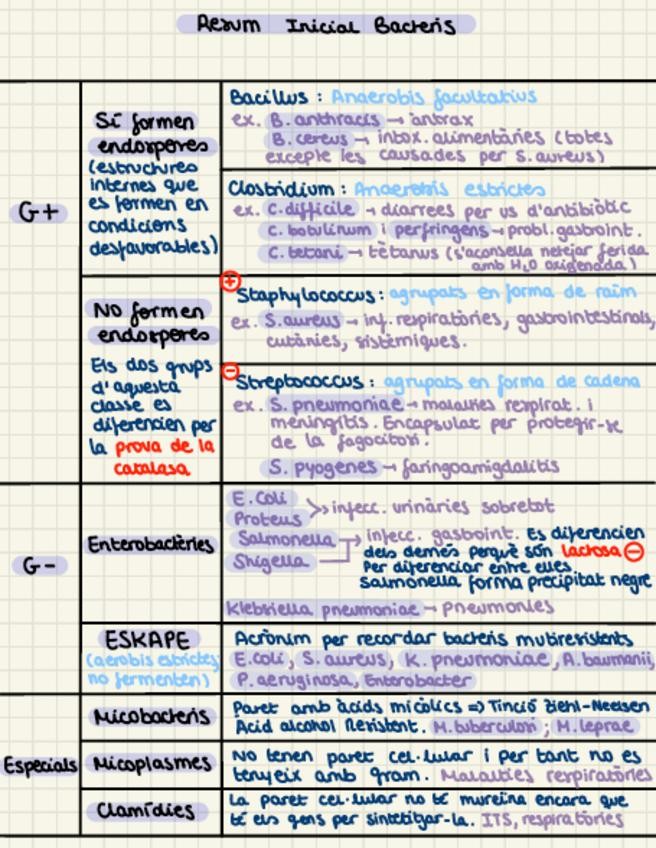 Resum Inicial Bacteris
G+
Sí formen
endospores
(estructures
internes que
es formen en
condicions
desfavorables)
Bacillus : Anaerobis facultatius
ex. B. anthracis → àntrax
B. cereus → intox. alimentàries (totes
excepte les causades per S. aureus)
Clostridium : Anaerobis estrictes
ex. C. difficile → diarrees per us d'antibiòtic
C. botulinum i perfringens → probl. gastroint.
C. tetani → tètanus (s'aconsella netejar ferida
amb H₂O oxigenada)
No formen
endospores
Els dos grups
d'aquesta
classe es
diferencien per
la prova de la
catalasa
+
Staphylococcus : agrupats en forma de raïm
ex. S. aureus → inf. respiratòries, gastrointestinals,
cutànies, sistèmiques.
−
Streptococcus : agrupats en forma de cadena
ex. S. pneumoniae → malalties respirat. i
meningitis. Encapsulat per protegir-se
de la fagocitosi.
S. pyogenes → faringoamigdalitis
G-
Enterobactèries
E. Coli
Proteus
>> infecc. urinàries sobretot
Salmonella
Shigella
→ infecc. gastroint. Es diferencien
dels demés perquè són lactosa −
Per diferenciar entre elles
Salmonella forma precipitat negre
Klebsiella pneumoniae → pneumonies
ESKAPE
(aerobis estrictes,
no fermenten)
Acrònim per recordar bacteris multiresistents
E. coli, S. aureus, K. pneumoniae, A. baumanii,
P. aeruginosa, Enterobacter
Especials
Micobacteris
Paret amb àcids micòlics => Tinció Ziehl-Neelsen
Acid alcohol Resistent. M. tuberculosi ; M. leprae
Micoplasmes
No tenen paret cel·lular i per tant no es
tenyeix amb gram. Malalties respiratòries
Clamídies
La paret cel·lular no té mureïna encara que
té els gens per sintetitzar-la. ITS, respiratòries